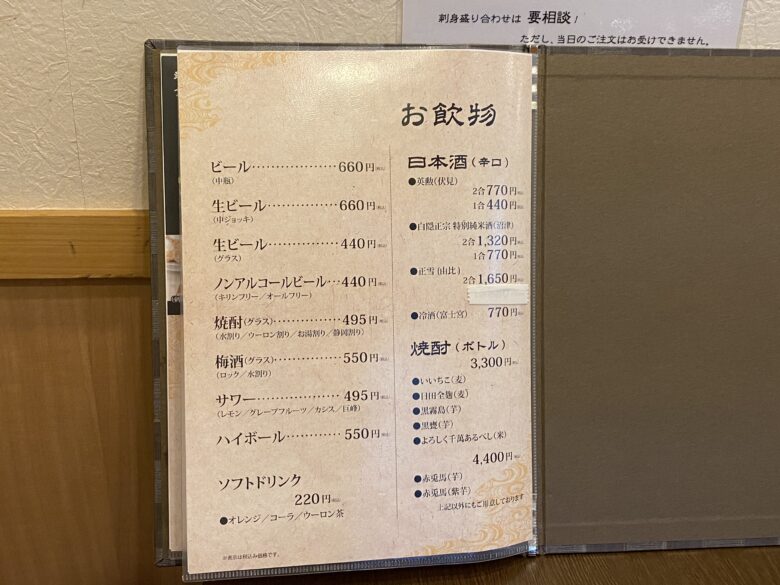 刺身盛り合わせは 要相談!
ただし、当日のご注文はお受けできません。
お飲物
ビール………………660円(税込)
(中瓶)
生ビール……………660円(税込)
(中ジョッキ)
生ビール……………440円(税込)
(グラス)
ノンアルコールビール…440円(税込)
(キリンフリー/オールフリー)
焼酎(グラス)…………495円(税込)
(水割り/ウーロン割り/お湯割り/静岡割り)
梅酒(グラス)…………550円(税込)
(ロック/水割り)
サワー………………495円(税込)
(レモン/グレープフルーツ/カシス/巨峰)
ハイボール…………550円(税込)
ソフトドリンク
220円(税込)
●オレンジ/コーラ/ウーロン茶
※表示は税込み価格です。
日本酒(辛口)
●英勲(伏見)
2合 770円(税込)
1合 440円(税込)
●白隠正宗 特別純米酒(沼津)
2合 1,320円(税込)
1合 770円(税込)
●正雪(由比)
2合 1,650円(税込)
●冷酒(富士宮) 770円(税込)
焼酎(ボトル)
3,300円(税込)
●いいちこ(麦)
●日田全麹(麦)
●黒霧島(芋)
●黒甕(芋)
●よろしく千萬あるべし(米)
4,400円(税込)
●赤兎馬(芋)
●赤兎馬(紫芋)
上記以外にもご用意しております